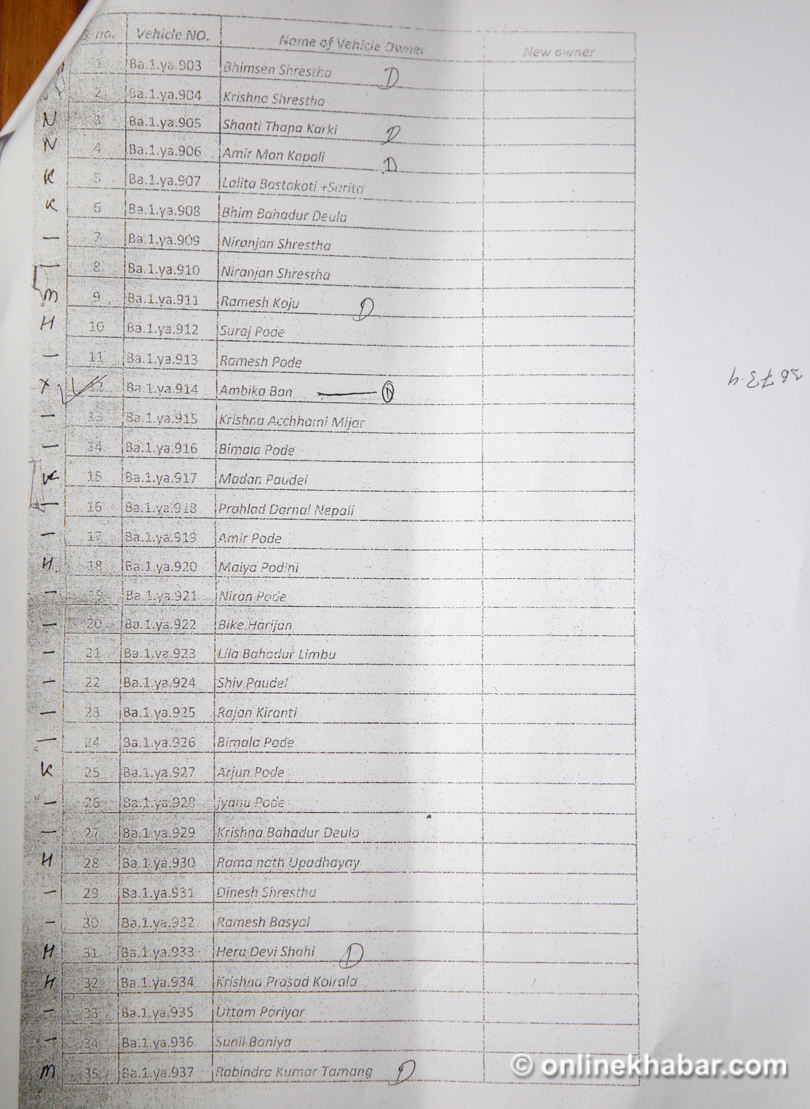 S. no. Vehicle NO. Name of Vehicle Owner New owner
1 Ba.1.ya.903 Bhimsen Shrestha D
2 Ba.1.ya.904 Krishna Shrestha
N 3 Ba.1.ya.905 Shanti Thapa Karki D
N 4 Ba.1.ya.906 Amir Man Kapali D
K 5 Ba.1.ya.907 Lalita Bastakoti +Sarita
K 6 Ba.1.ya.908 Bhim Bahadur Deula
— 7 Ba.1.ya.909 Niranjan Shrestha
— 8 Ba.1.ya.910 Niranjan Shrestha
M 9 Ba.1.ya.911 Ramesh Koju D
H 10 Ba.1.ya.912 Suraj Pode
— 11 Ba.1.ya.913 Ramesh Pode
x 12 Ba.1.ya.914 Ambika Ban — D
— 13 Ba.1.ya.915 Krishna Acchhami Mijar
— 14 Ba.1.ya.916 Bimala Pode
K 15 Ba.1.ya.917 Madan Paudel
— 16 Ba.1.ya.918 Prahlad Darnal Nepali
— 17 Ba.1.ya.919 Amir Pode
H 18 Ba.1.ya.920 Maiya Podini
— 19 Ba.1.ya.921 Niran Pode
— 20 Ba.1.ya.922 Bike Harijan
— 21 Ba.1.ya.923 Lila Bahadur Limbu
— 22 Ba.1.ya.924 Shiv Paudel
— 23 Ba.1.ya.925 Rajan Kiranti
— 24 Ba.1.ya.926 Bimala Pode
K 25 Ba.1.ya.927 Arjun Pode
— 26 Ba.1.ya.928 Jyanu Pode
— 27 Ba.1.ya.929 Krishna Bahadur Deula
H 28 Ba.1.ya.930 Rama nath Upadhayay
— 29 Ba.1.ya.931 Dinesh Shrestha
— 30 Ba.1.ya.932 Ramesh Basyal
H 31 Ba.1.ya.933 Hera Devi Shahi D
H 32 Ba.1.ya.934 Krishna Prasad Koirala
— 33 Ba.1.ya.935 Uttam Pariyar
— 34 Ba.1.ya.936 Sunil Baniya
M 35 Ba.1.ya.937 Rabindra Kumar Tamang D
© onlinekhabar.com